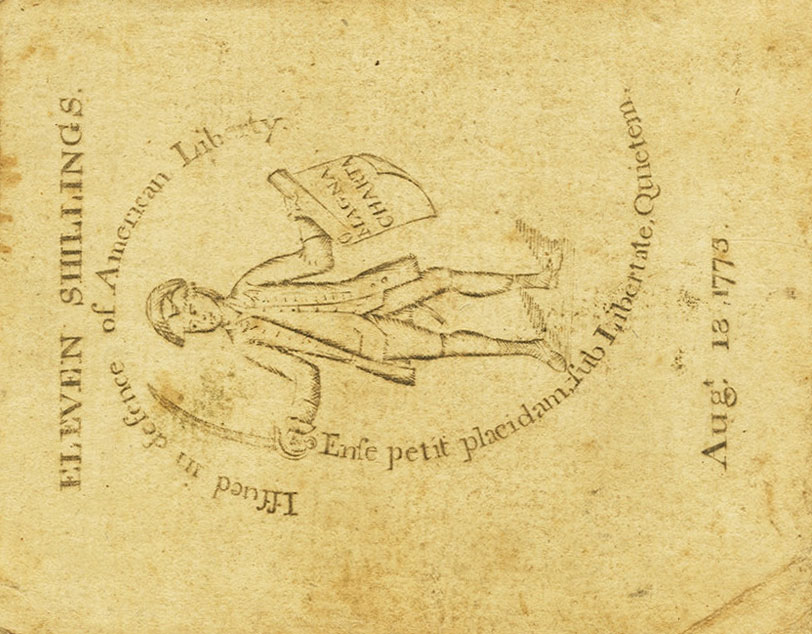 ELEVEN SHILLINGS.
Iſſued in defence of American Liberty.
MAGNA
CHARTA
Enſe petit placidam, ſub Libertate, Quietem.
Augt. 18, 1775.